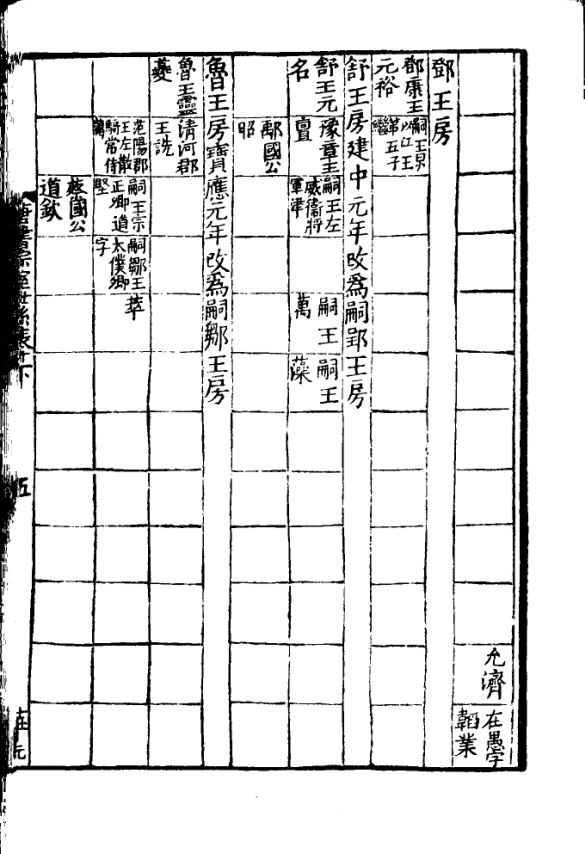 允濟
在愚字
韜業
鄧王房
鄧康王元裕
嗣王炅以江王第五子繼
舒王房建中元年改爲嗣郢王房
舒王元名
豫章王亶
嗣王左威衞將軍津
嗣王萬
嗣王藻
鄅國公昭
魯王房寶應元年改爲嗣鄒王房
魯王靈夔
清河郡王詵
范陽郡王左散騎常侍藹
嗣王宗正卿道堅
嗣鄒王太僕卿宇
萃
蔡國公道欽
五